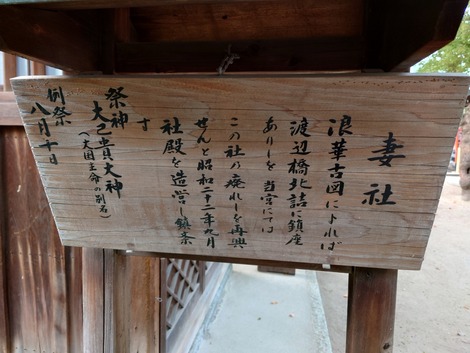 妻社
浪華古図によれば
渡辺橋北詰に鎮座
ありしを当宮にては
この社の廃れしを再興
せんと昭和二十二年九月
社殿を造営し鎮祭
す
祭神
大己貴大神
(大国主命の別名)
例祭
八月十日